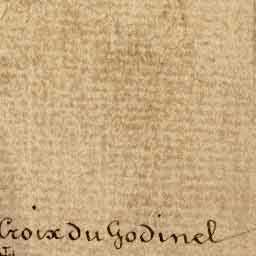 Croix du Godinel